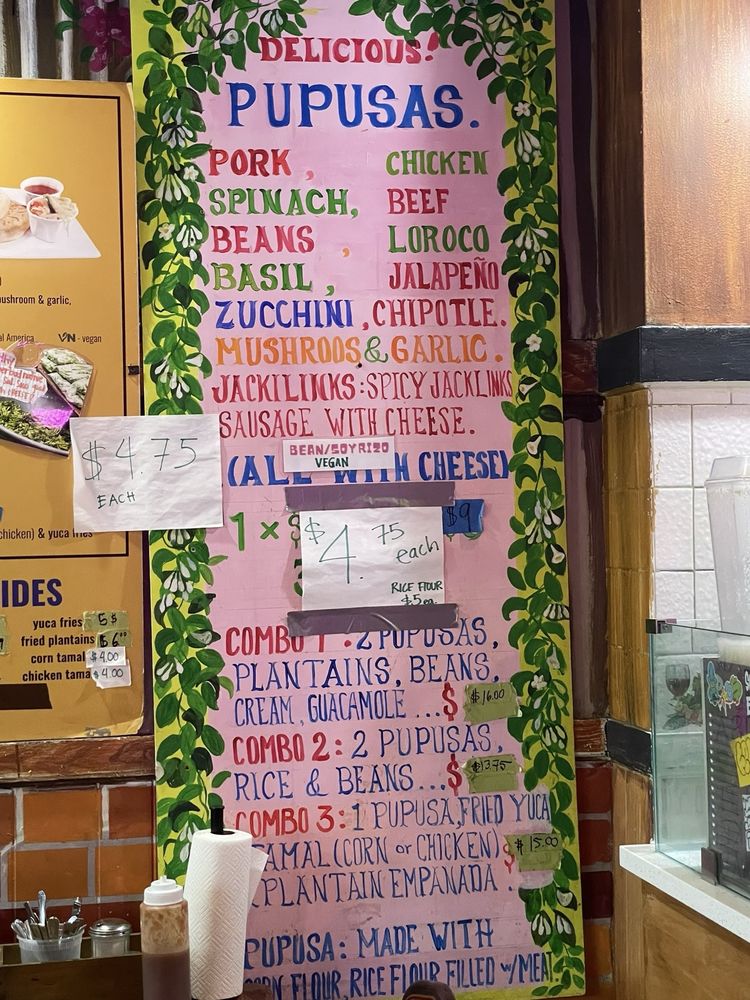 DELICIOUS!
PUPUSAS.
PORK, CHICKEN
SPINACH, BEEF
BEANS, LOROCO
BASIL, JALAPEÑO
ZUCCHINI, CHIPOTLE.
MUSHROOS & GARLIC.
JACKILINKS: SPICY JACKLINKS
SAUSAGE WITH CHEESE.
BEAN/SOYRIZO
VEGAN
(ALL WITH CHEESE)
1 × $
$9
$4.75 each
RICE FLOUR
$5 ea
COMBO 1: 2 PUPUSAS,
PLANTAINS, BEANS,
CREAM, GUACAMOLE ...$ $16.00
COMBO 2: 2 PUPUSAS,
RICE & BEANS...$ $13.75
COMBO 3: 1 PUPUSA, FRIED YUCA
TAMAL (CORN or CHICKEN) $ $15.00
PLANTAIN EMPANADA.
PUPUSA: MADE WITH
CORN FLOUR, RICE FLOUR FILLED w/MEAT
ushroom & garlic,
al America VN - vegan
$4.75
EACH
chicken) & yuca fries
IDES
yuca fries 5$
fried plantains $6.00
corn tamal $4.00
chicken tama $4.00